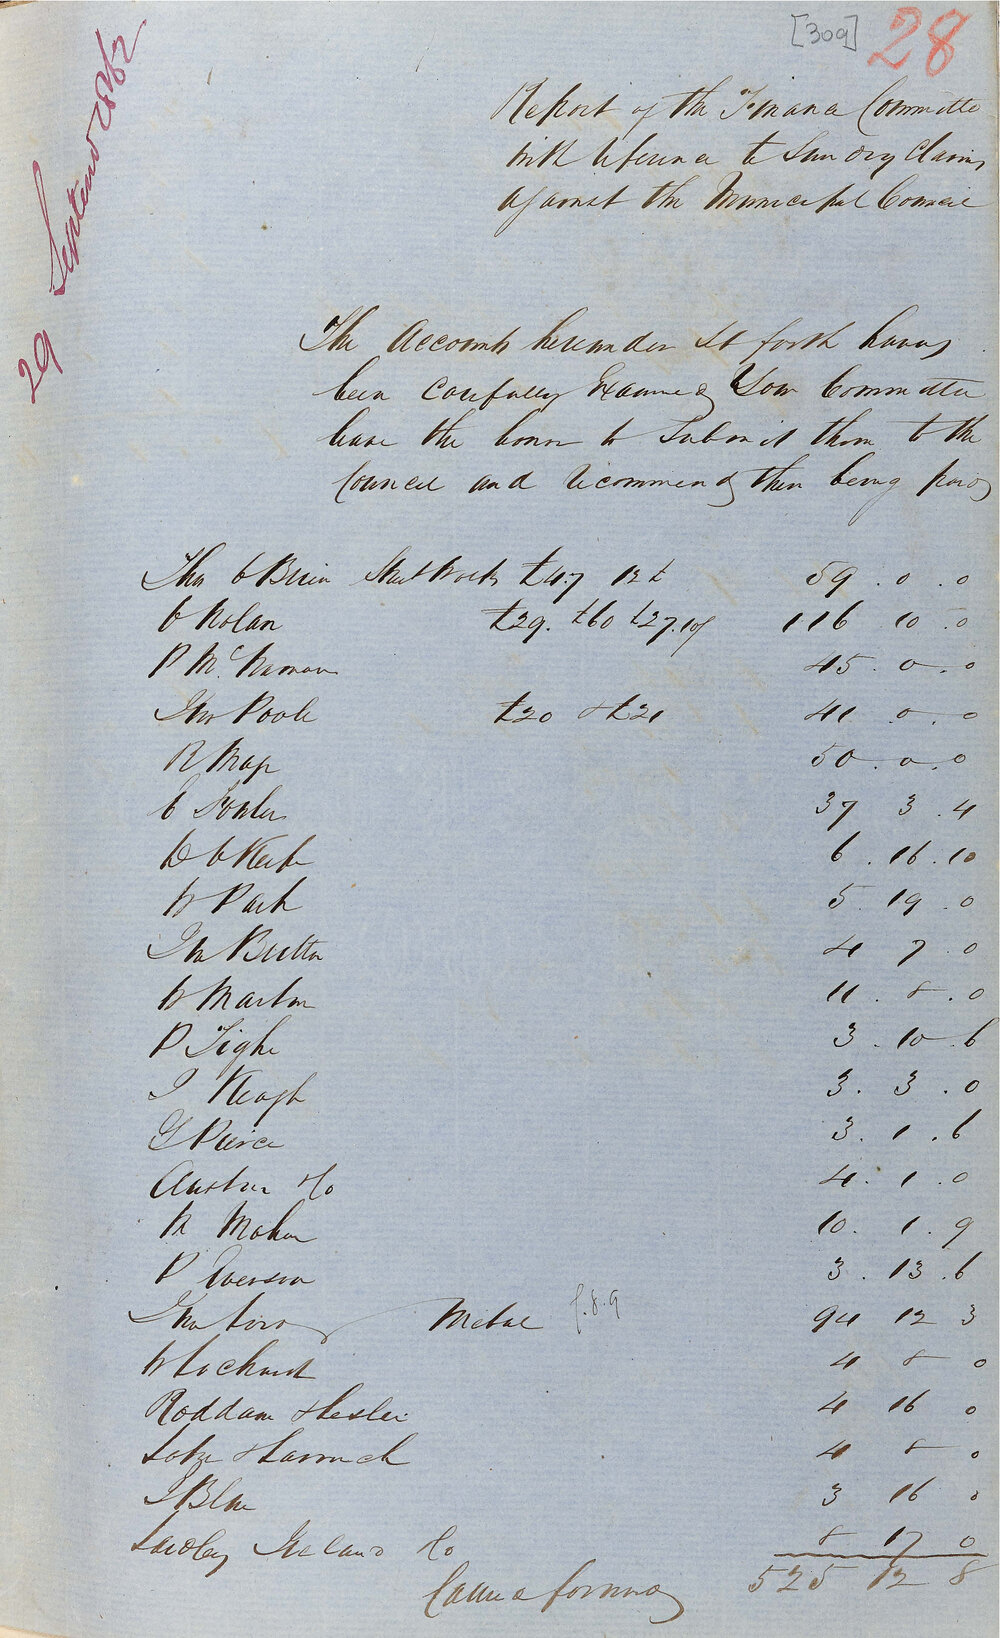 [309] 28
29 September 1862
Report of the Finance Committee
with reference to Sundry Claims
against the Municipal Council
The Accounts hereunder set forth having
been carefully Examined Your Committee
have the honor to Submit them to the
Council and recommend their being paid
Thos O'Brien Street Work £47 12£ 59 . 0 . 0
O Nolan £29. £60 £27.10/ 116 10 . 0
P McNamara 45 . 0 . 0
Jno Poole £20 & £21 41 0 . 0
R 50 . 0 . 0
C Fowler 37 3 . 4
D O'Keefe 6 . 16 . 10
W Park 5 . 19 . 0
Jno 4 7 . 0
W Martin 11 . 8 . 0
P Tighe 3 . 10 . 6
J Keogh 3 . 3 . 0
G Pierce 3 . 1 . 6
4 . 1 . 0
Mahon 10 . 1 . 9
P 3 . 13 . 6
Jno Metal f.8.9 94 12 3
W Lochead 4 8 0
Roddam & Hesler 4 16 0
4 8 0
J 3 16 0
Ireland Co 8 17 0
Carried forward 525 12 8